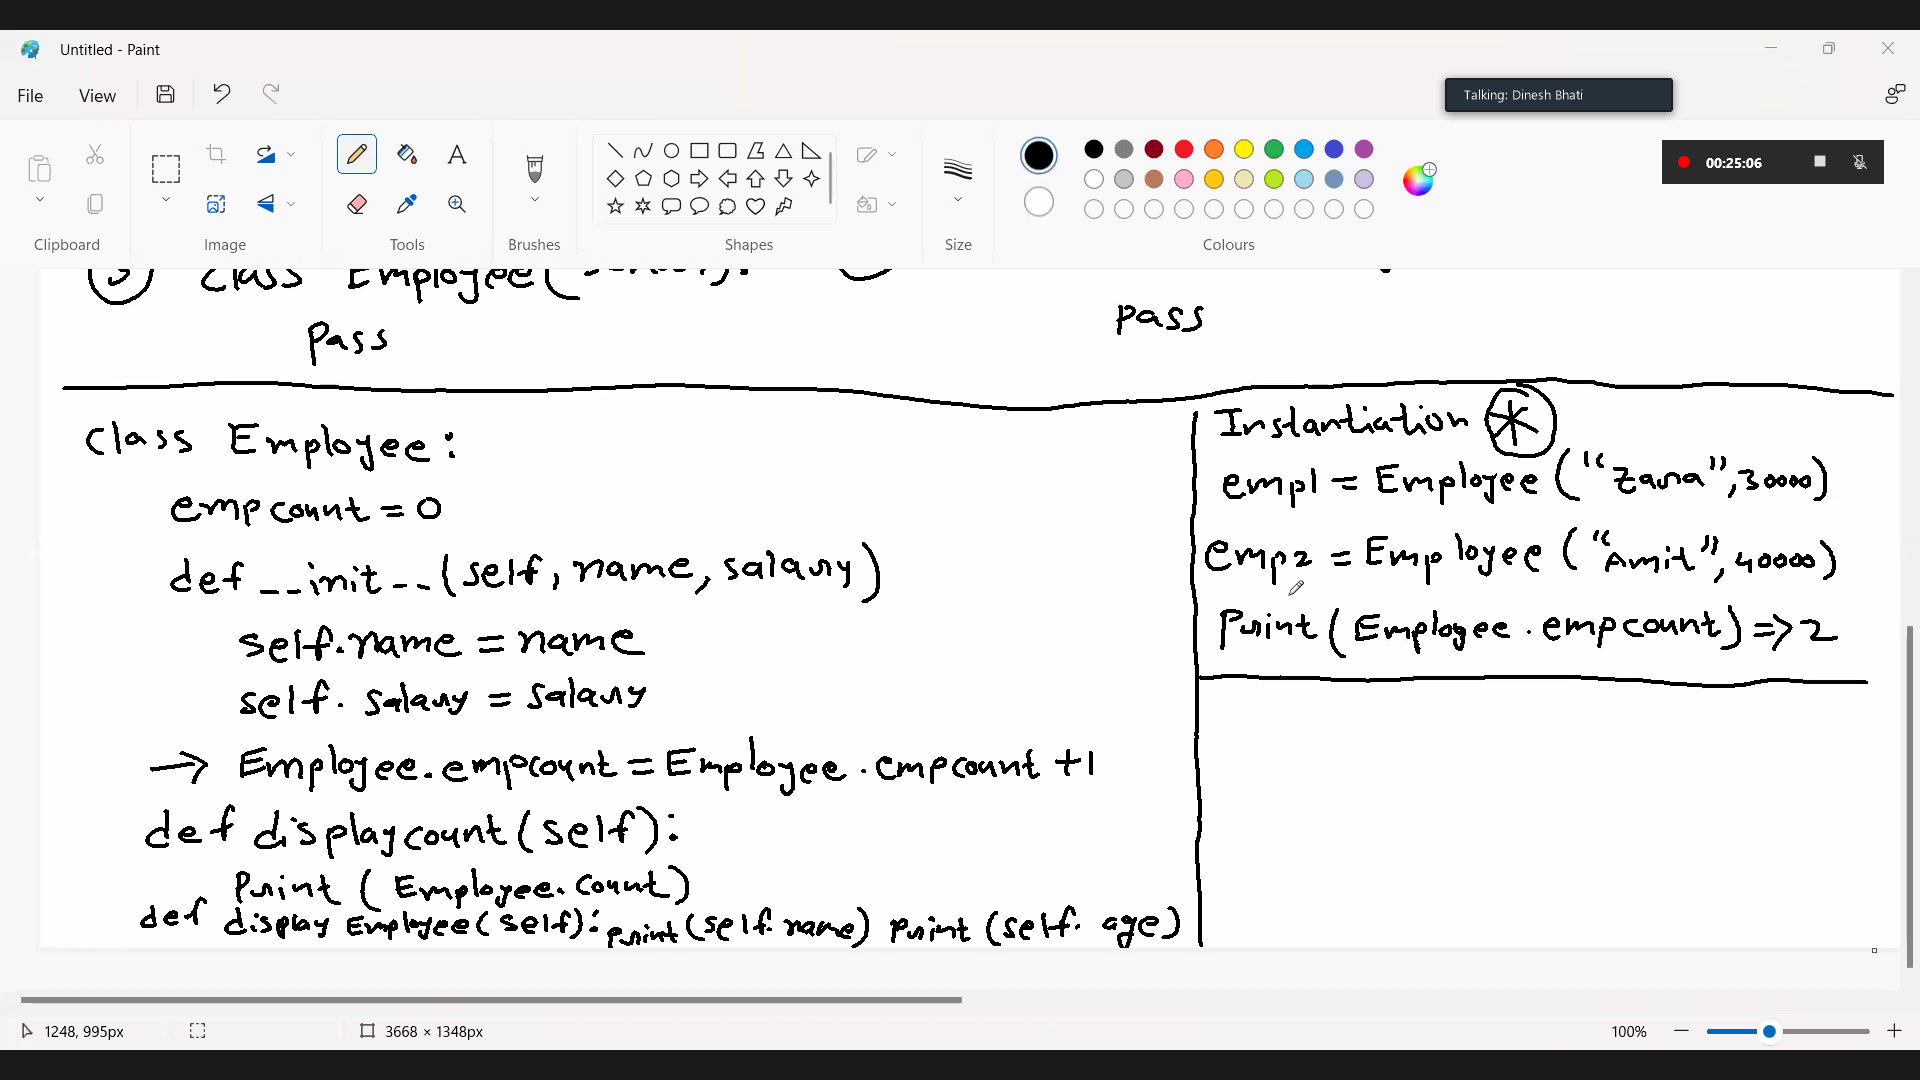 Untitled - Paint
File View
Talking: Dinesh Bhati
00:25:06
Clipboard Image Tools Brushes Shapes Size Colours
class Employee
Pass
pass
class Employee:
empcount = 0
def __init__(self, name, salary)
self.name = name
self. salary = salary
→ Employee.empcount = Employee.empcount +1
def displaycount(self):
Print ( Employee.Count)
def display Employee(self): print (self. name) print (self. age)
Instantiation *
emp1 = Employee ("Zara", 30000)
emp2 = Employee ("Amit", 40000)
Print (Employee.empcount) => 2
1248, 995px 3668 × 1348px 100%